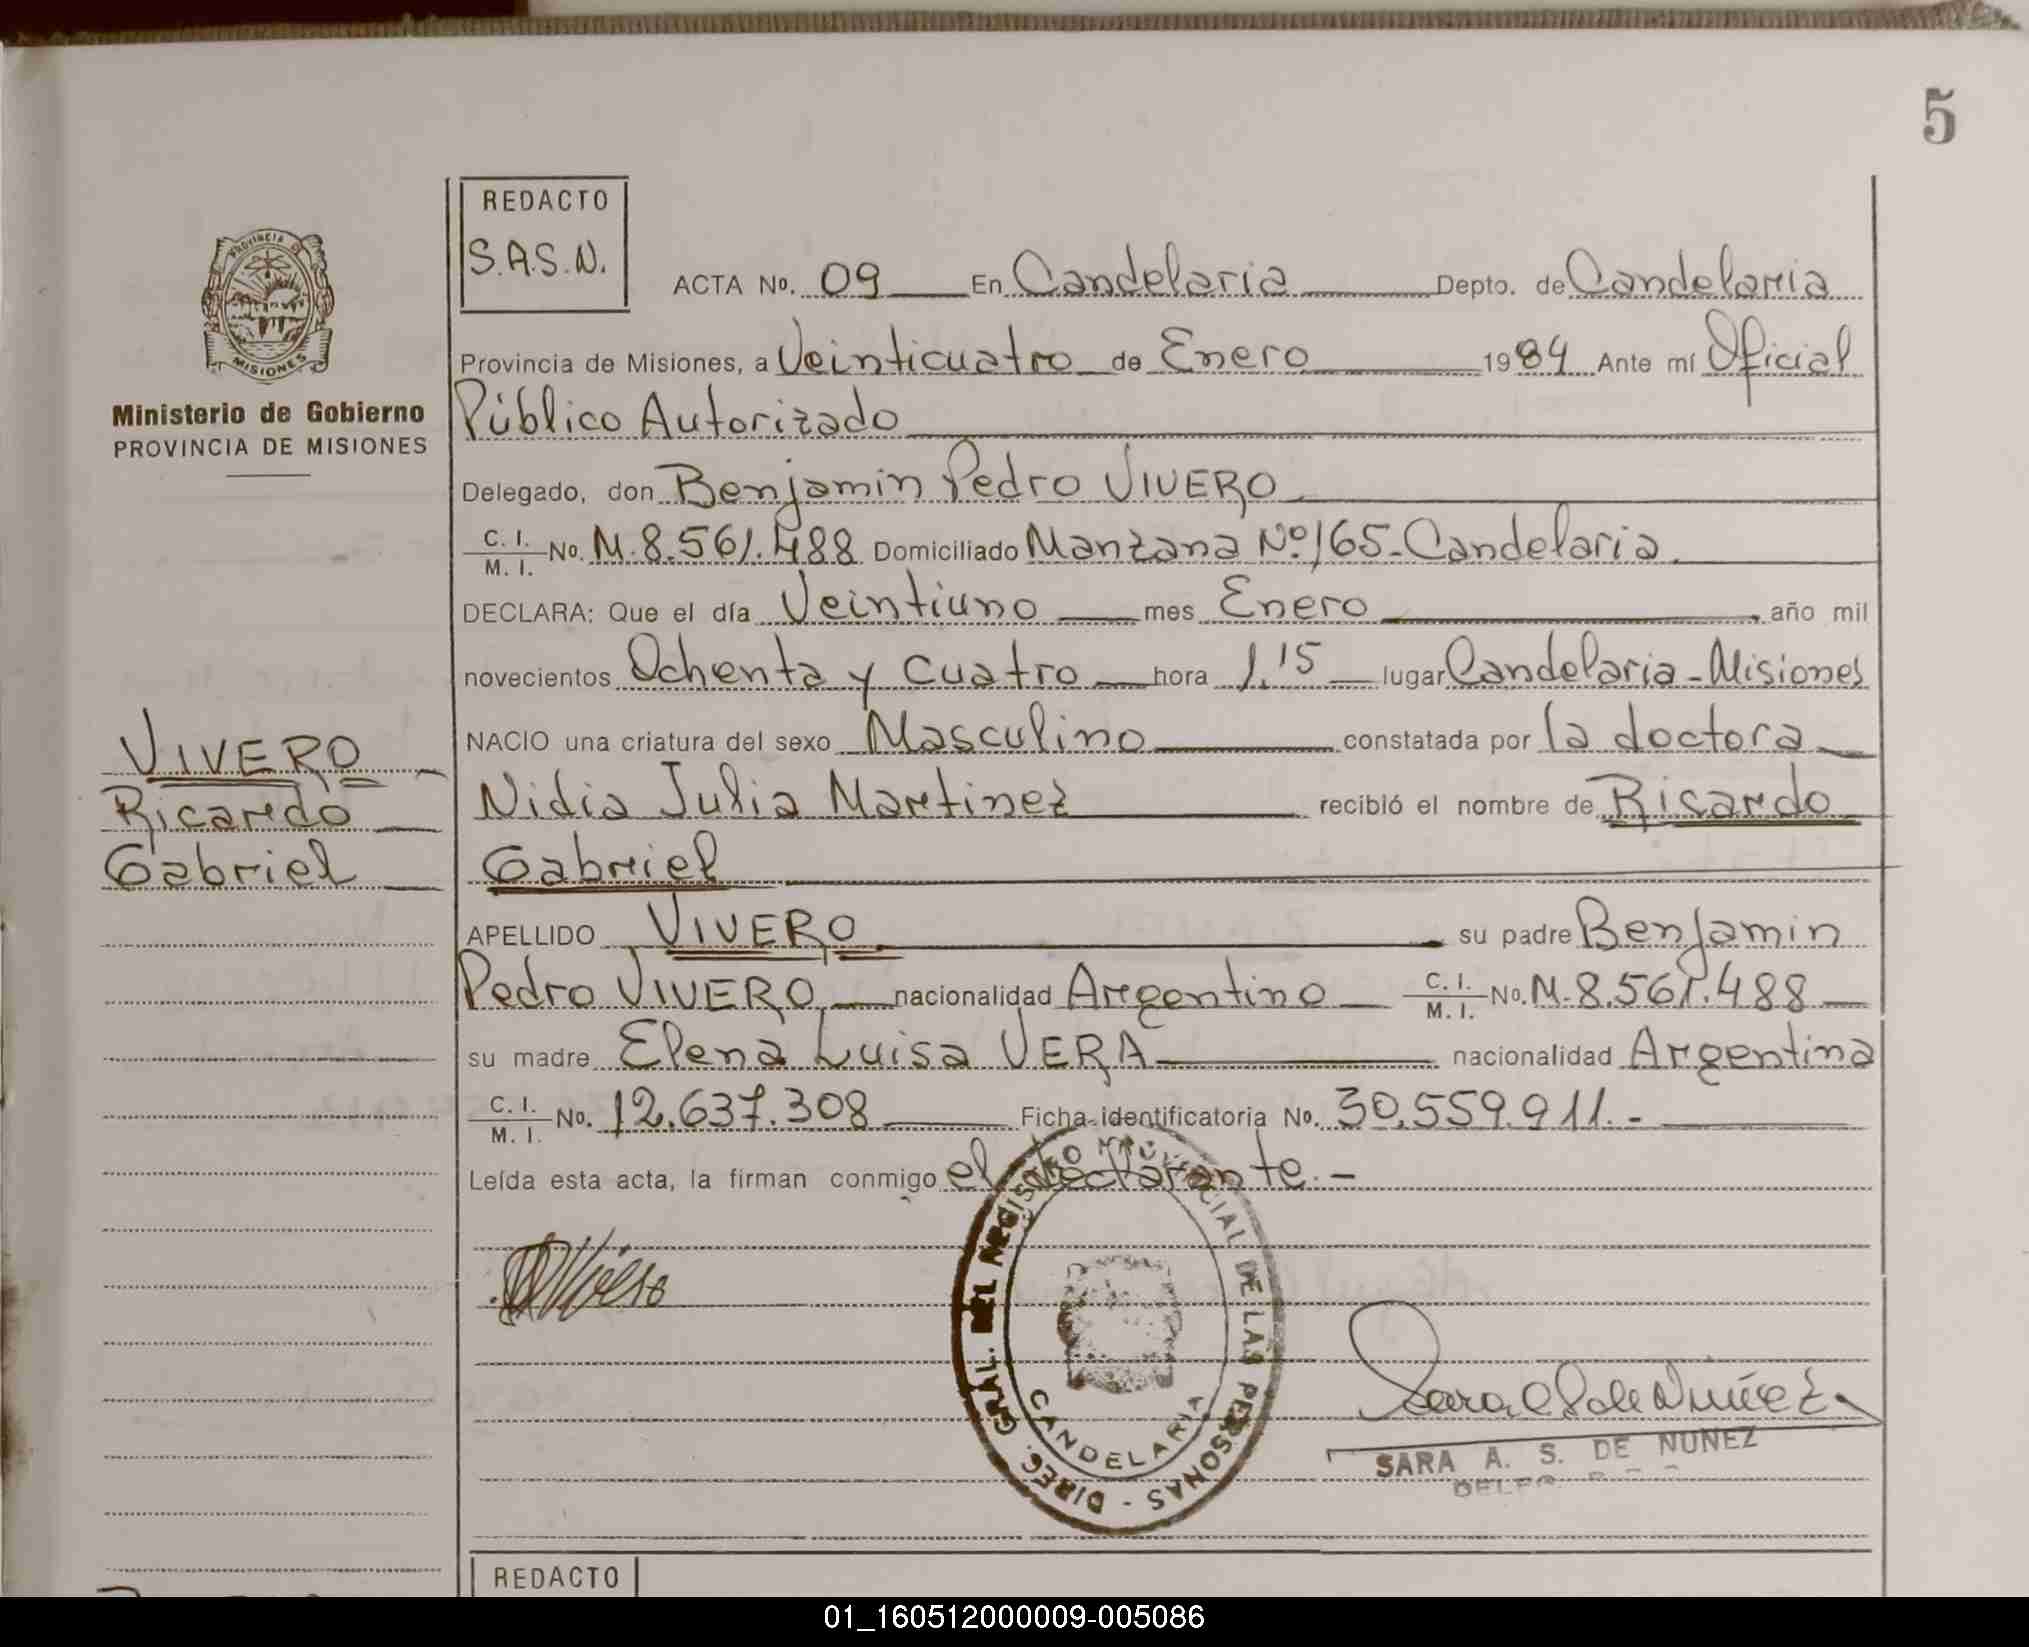 5
REDACTO
S.A.S.N.
PROVINCIA DE
MISIONES
Ministerio de Gobierno
PROVINCIA DE MISIONES
ACTA No. 09 En Candelaria Depto. de Candelaria
Provincia de Misiones, a Veinticuatro de Enero 1984 Ante mí Oficial
Público Autorizado
Delegado, don Benjamin Pedro VIVERO
C. I. / M. I. No. M.8.561.488 Domiciliado Manzana Nº165-Candelaria.
DECLARA: Que el día Veintiuno mes Enero, año mil
novecientos Ochenta y Cuatro hora 1,15 lugar Candelaria-Misiones
NACIO una criatura del sexo Masculino constatada por la doctora
Nidia Julia Martinez recibió el nombre de Ricardo
Gabriel
VIVERO
Ricardo
Gabriel
APELLIDO VIVERO su padre Benjamin
Pedro VIVERO nacionalidad Argentino C. I. / M. I. No. M.8.561.488
su madre Elena Luisa VERA nacionalidad Argentina
C. I. / M. I. No. 12.637.308 Ficha identificatoria No. 30.559.911.-
Leída esta acta, la firman conmigo el declarante.-
DIREC. GRAL. DEL REGISTRO PROVINCIAL DE LAS PERSONAS -
CANDELARIA
Sara A S de Núñez
SARA A. S. DE NUÑEZ
REDACTO
01_160512000009-005086